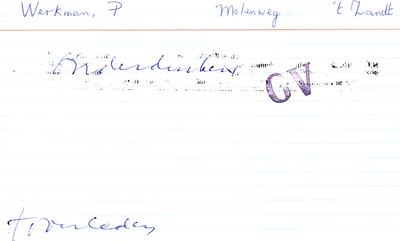 Werkman, P Molenweg 't Zandt
Onderduikers GV
† overleden